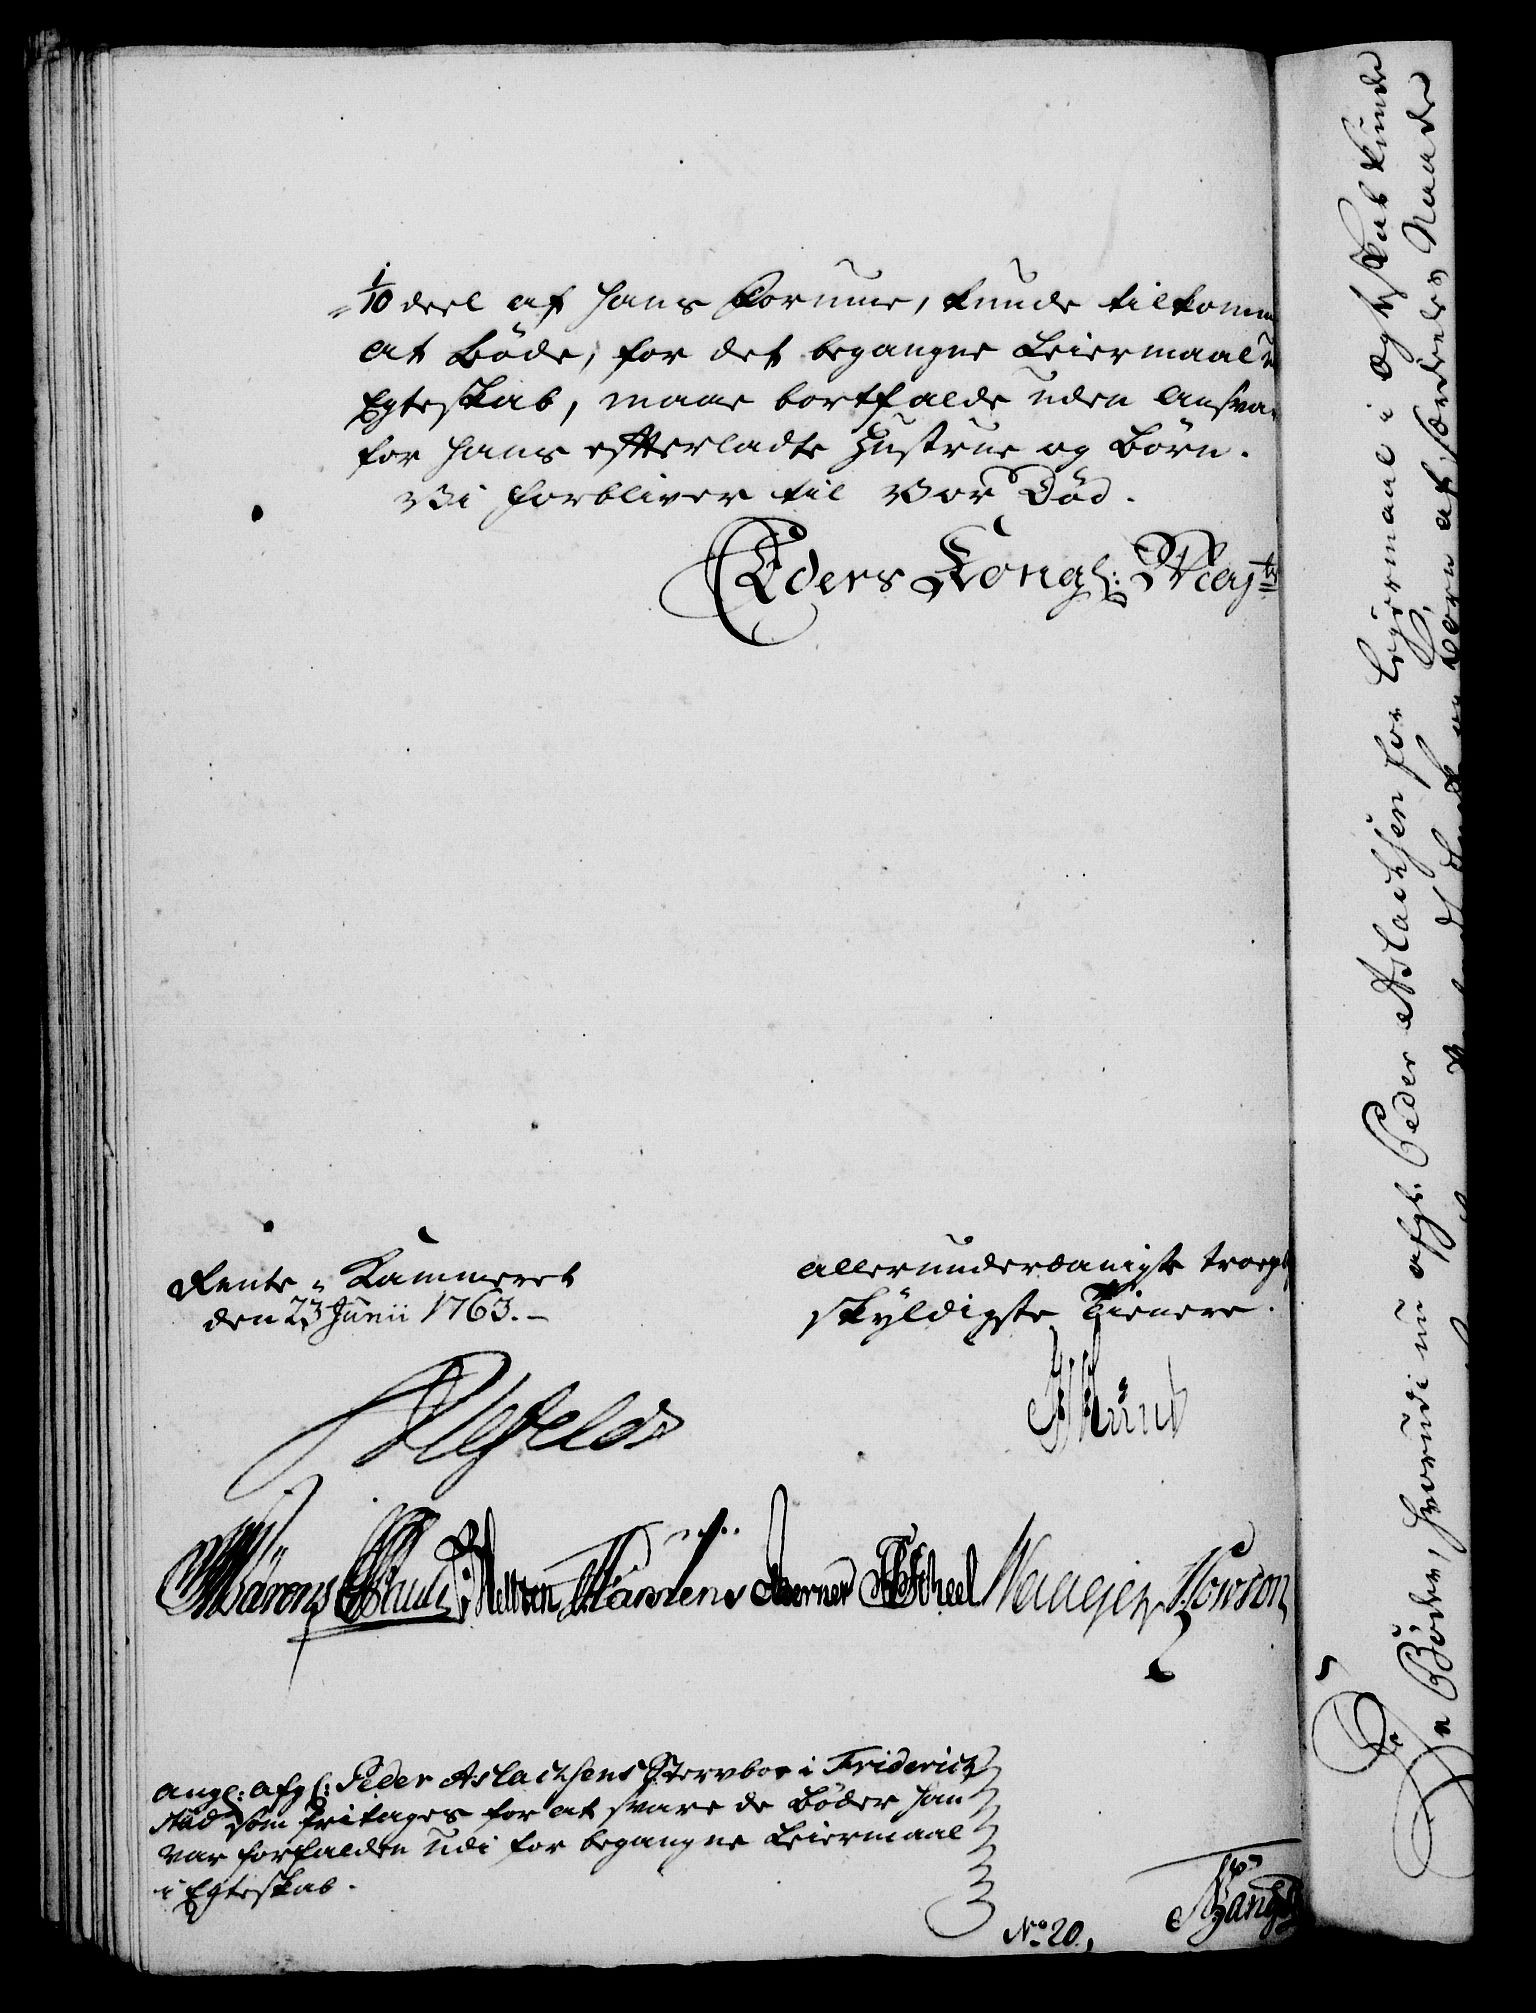 1/10 deel af hans Formue, kunde tilkomm
at bøde, for det begangne Leiermaal
Egteskab, maae bortfalde uden Ansva
for hans efterladte Hustrue og Børn.
Vi forbliver til Vor Død.
Eders Kongl: Mayts
Rente-Kammeret
den 23 Junii 1763.
allerunderdanigste troepl
skyldigste Tienere.
Scheel
ang: afg: Peder Aslachsens Stervboe i Friderich
stad som fritages for at svare de Bøder han
var forfalden udi for begangne Leiermaal
i Egteskab.
No 20,
De Bøder, hvorudi nu afg: Peder Aslachsen for Lejermaal i Ægteskab kunde
og Børn af særdeles Naade